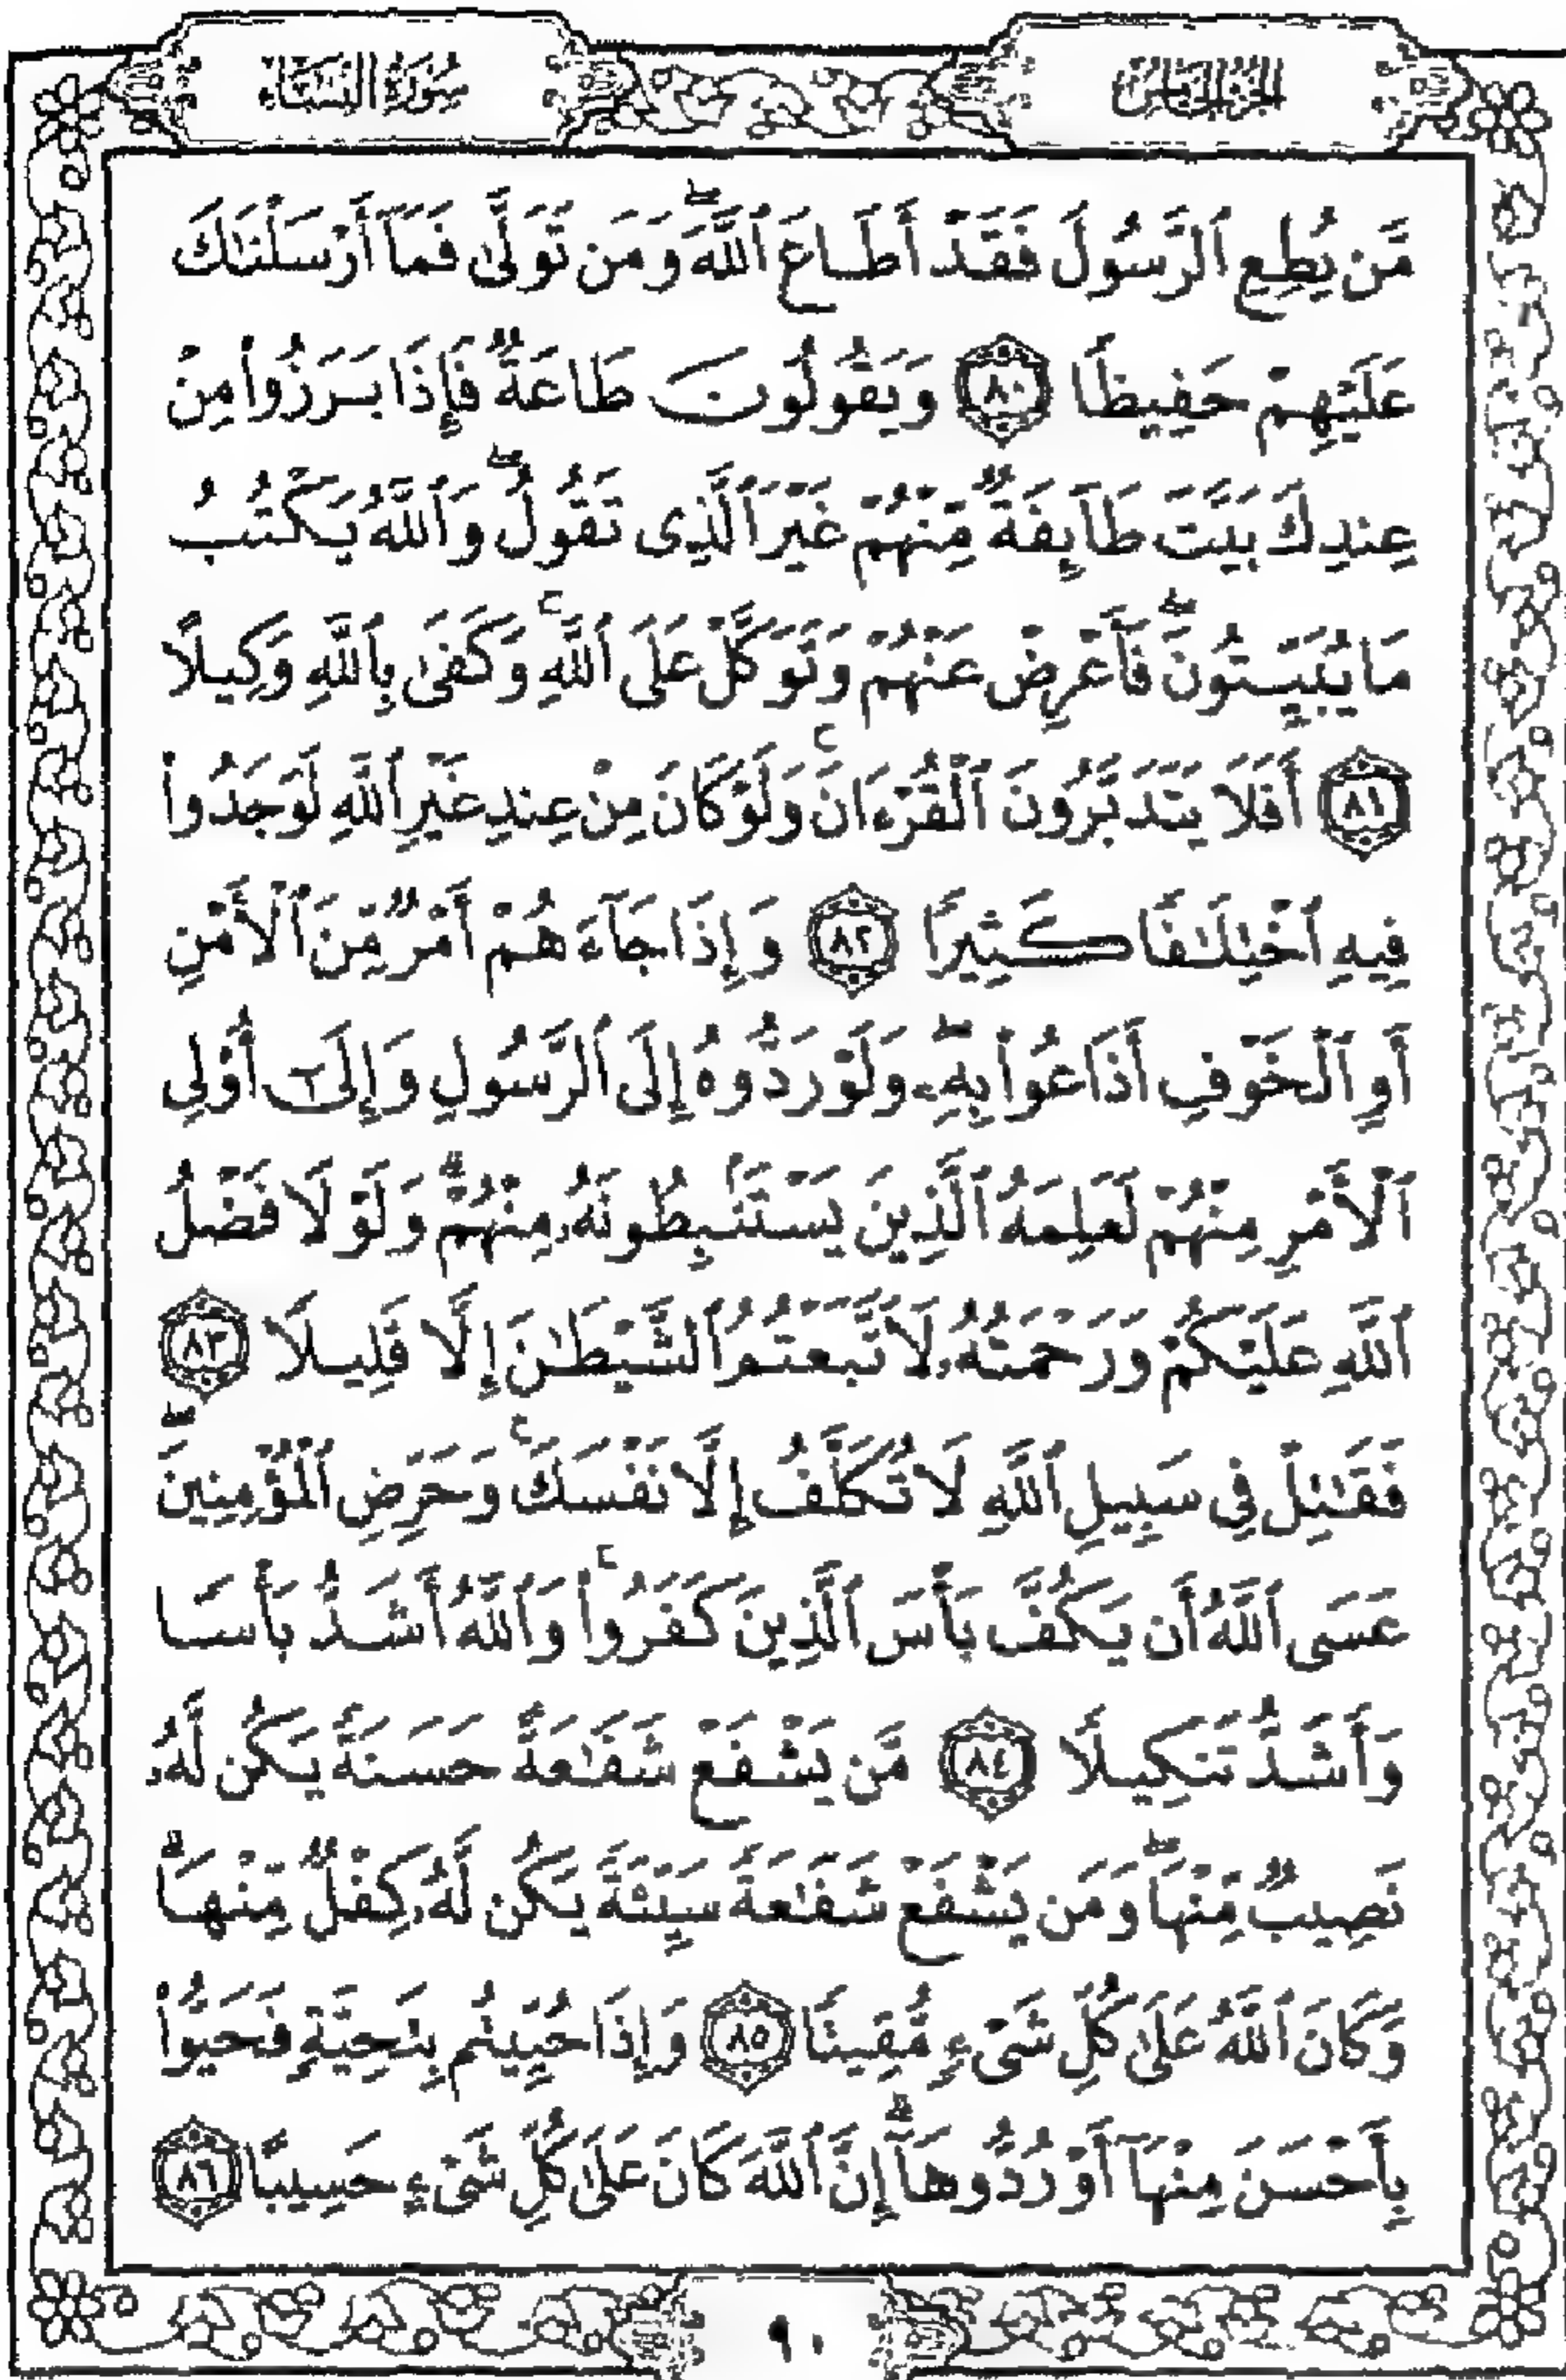 الجزء الخامس
سورة النساء
مَّن يُطِعِ ٱلرَّسُولَ فَقَدْ أَطَاعَ ٱللَّهَ ۖ وَمَن تَوَلَّىٰ فَمَآ أَرْسَلْنَٰكَ
عَلَيْهِمْ حَفِيظًا ٨٠ وَيَقُولُونَ طَاعَةٌ فَإِذَا بَرَزُوا۟ مِنْ
عِندِكَ بَيَّتَ طَآئِفَةٌ مِّنْهُمْ غَيْرَ ٱلَّذِى تَقُولُ ۖ وَٱللَّهُ يَكْتُبُ
مَا يُبَيِّتُونَ ۖ فَأَعْرِضْ عَنْهُمْ وَتَوَكَّلْ عَلَى ٱللَّهِ ۚ وَكَفَىٰ بِٱللَّهِ وَكِيلًا
٨١ أَفَلَا يَتَدَبَّرُونَ ٱلْقُرْءَانَ ۚ وَلَوْ كَانَ مِنْ عِندِ غَيْرِ ٱللَّهِ لَوَجَدُوا۟
فِيهِ ٱخْتِلَٰفًا كَثِيرًا ٨٢ وَإِذَا جَآءَهُمْ أَمْرٌ مِّنَ ٱلْأَمْنِ
أَوِ ٱلْخَوْفِ أَذَاعُوا۟ بِهِۦ ۖ وَلَوْ رَدُّوهُ إِلَى ٱلرَّسُولِ وَإِلَىٰٓ أُو۟لِى
ٱلْأَمْرِ مِنْهُمْ لَعَلِمَهُ ٱلَّذِينَ يَسْتَنۢبِطُونَهُۥ مِنْهُمْ ۗ وَلَوْلَا فَضْلُ
ٱللَّهِ عَلَيْكُمْ وَرَحْمَتُهُۥ لَٱتَّبَعْتُمُ ٱلشَّيْطَٰنَ إِلَّا قَلِيلًا ٨٣
فَقَٰتِلْ فِى سَبِيلِ ٱللَّهِ لَا تُكَلَّفُ إِلَّا نَفْسَكَ ۚ وَحَرِّضِ ٱلْمُؤْمِنِينَ ۖ
عَسَى ٱللَّهُ أَن يَكُفَّ بَأْسَ ٱلَّذِينَ كَفَرُوا۟ ۚ وَٱللَّهُ أَشَدُّ بَأْسًا
وَأَشَدُّ تَنكِيلًا ٨٤ مَّن يَشْفَعْ شَفَٰعَةً حَسَنَةً يَكُن لَّهُۥ
نَصِيبٌ مِّنْهَا ۖ وَمَن يَشْفَعْ شَفَٰعَةً سَيِّئَةً يَكُن لَّهُۥ كِفْلٌ مِّنْهَا ۗ
وَكَانَ ٱللَّهُ عَلَىٰ كُلِّ شَىْءٍ مُّقِيتًا ٨٥ وَإِذَا حُيِّيتُم بِتَحِيَّةٍ فَحَيُّوا۟
بِأَحْسَنَ مِنْهَآ أَوْ رُدُّوهَآ ۗ إِنَّ ٱللَّهَ كَانَ عَلَىٰ كُلِّ شَىْءٍ حَسِيبًا ٨٦
٩٠